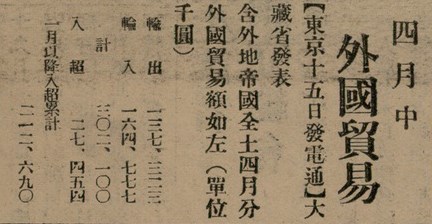 四月中
外國貿易
【東京十五日發電通】大
藏省發表
含外地帝國全土四月分
外國貿易額如左（單位
千圓）
輸出 一三七、三二三
輸入 一六四、七七七
計 三〇二、一〇〇
入超 二七、四五四
一月以降入超累計
二一二、六九〇